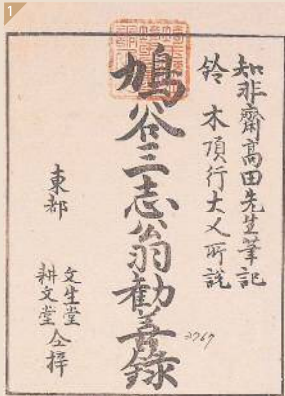 1
知非齋髙田先生筆記
鈴木頂行大人所說
鳩谷三志翁勸善錄
東都
文生堂
耕文堂
仝梓
3767